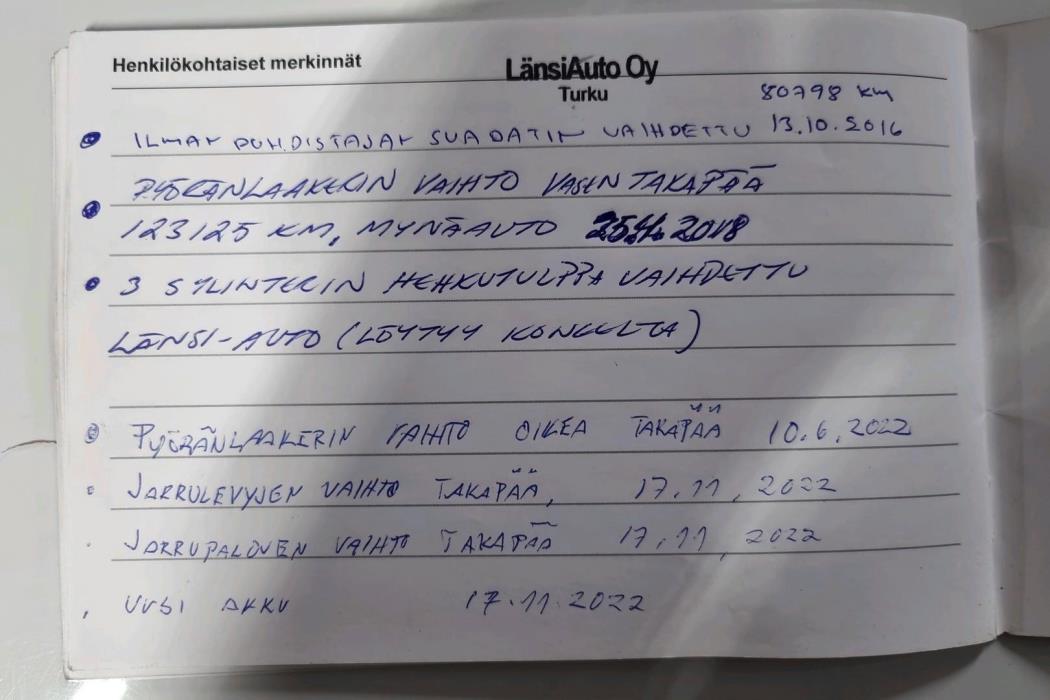 Henkilökohtaiset merkinnät
LänsiAuto Oy
Turku
80798 km
ILMAN PUHDISTAJAN SUADATIN VAIHDETTU 13.10.2016
PYÖRÄNLAAKERIN VAIHTO VASEN TAKAPÄÄ
123125 KM, MYNÄAUTO 25.4. 2018
3 SYLINTERIN HEHKUTULPPA VAIHDETTU
LÄNSI-AUTO (LÖYTYY KONEELTA)
PYÖRÄNLAAKERIN VAIHTO OIKEA TAKAPÄÄ 10.6.2022
JARRULEVYJEN VAIHTO TAKAPÄÄ, 17.11, 2022
JARRUPALOJEN VAIHTO TAKAPÄÄ 17.11, 2022
UUSI AKKU 17.11.2022